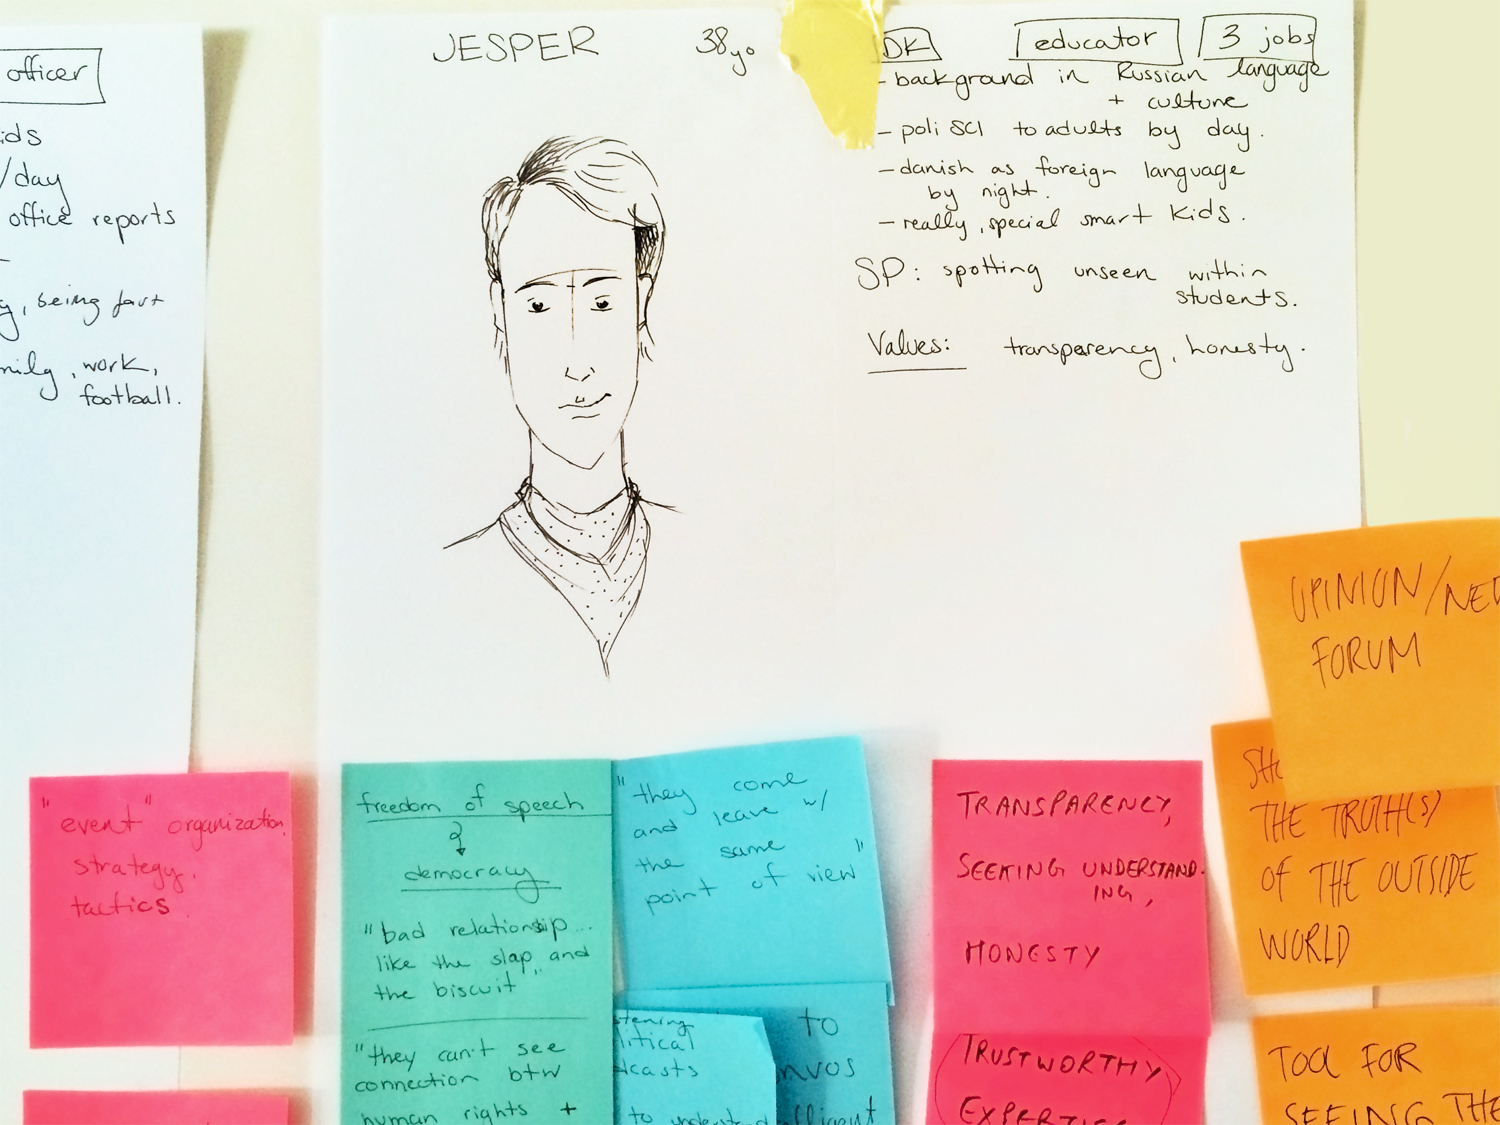 officer
/day
office reports
, being
, work,
football.
JESPER
38yo
DK
educator
3 jobs
- background in Russian language
+ culture
- poli sci to adults by day.
- danish as foreign language
by night.
- really, special smart kids.
SP: spotting unseen within
students.
Values: transparency, honesty.
"event" organization,
strategy.
tactics
freedom of speech
democracy
"bad relationship...
like the slap and
the biscuit"
"they can't see
connection btw
human rights +
"they come
and leave w/
the same
point of view"
to
to understand
TRANSPARENCY,
SEEKING UNDERSTAND-
ING,
HONESTY
TRUSTWORTHY
OPINION/
FORUM
THE TRUTH(S)
OF THE OUTSIDE
WORLD
TOOL FOR
SEEING THE